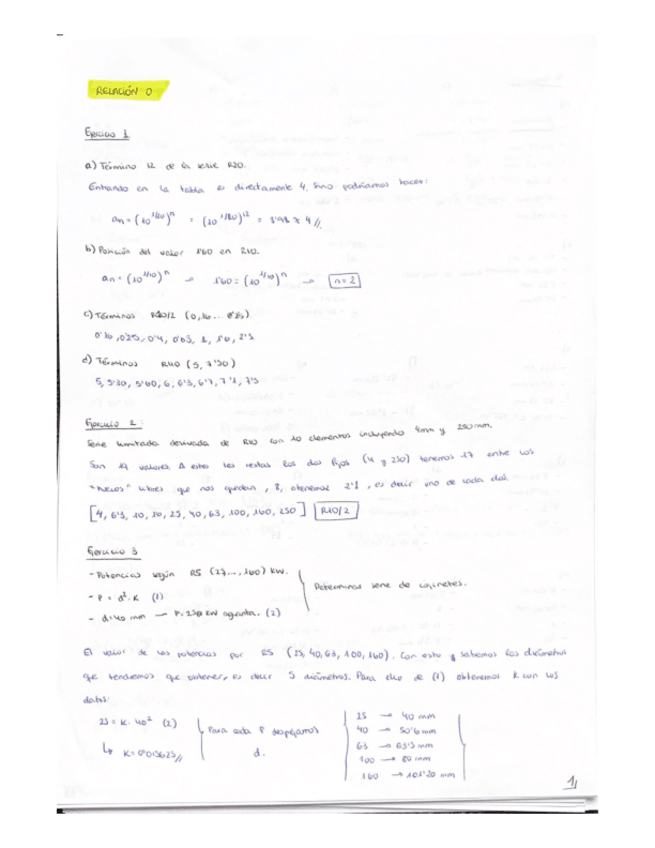 RELACIÓN 0
Ejercicio 1
a) Término 12 de la serie R20.
Entrando en la tabla es directamente 4. Sino podríamos hacer:
an = (10^1/20)^n = (10^1/20)^12 = 3'98 ≈ 4 //
b) Posición del valor 1'60 en R10.
an = (10^1/10)^n → 1'60 = (10^1/10)^n → n = 2
c) Términos R10/2 (0,16... 2'5)
0'16, 0'25, 0'4, 0'63, 1, 1'6, 2'5
d) Términos R40 (5, 7'50)
5, 5'30, 5'60, 6, 6'3, 6'7, 7'1, 7'5
Ejercicio 2:
Serie limitada derivada de R10 con 10 elementos incluyendo 4mm y 250mm.
Son 19 valores. A estos les restas los dos fijos (4 y 250) tenemos 17 entre los
"huecos" libres que nos quedan, 8, obtenemos 2'1, es decir uno de cada dos.
[4, 6'3, 10, 16, 25, 40, 63, 100, 160, 250] R10/2
Ejercicio 3
- Potencias según R5 (25..., 160) kW.
- P = d². K (1)
- d=40 mm → P: 25 kW aguanta. (2)
Determinar serie de cojinetes.
El valor de las potencias por R5 (25, 40, 63, 100, 160). Con esto y sabemos los diámetros
que tendremos que obtener, es decir 5 diámetros. Para ello de (1) obtenemos K con los
datos:
25 = K. 40² (2)
↳ K = 0'015625 //
Para cada P despejamos
d.
25 → 40 mm
40 → 50'6 mm
63 → 63'5 mm
100 → 80 mm
160 → 101'20 mm
1